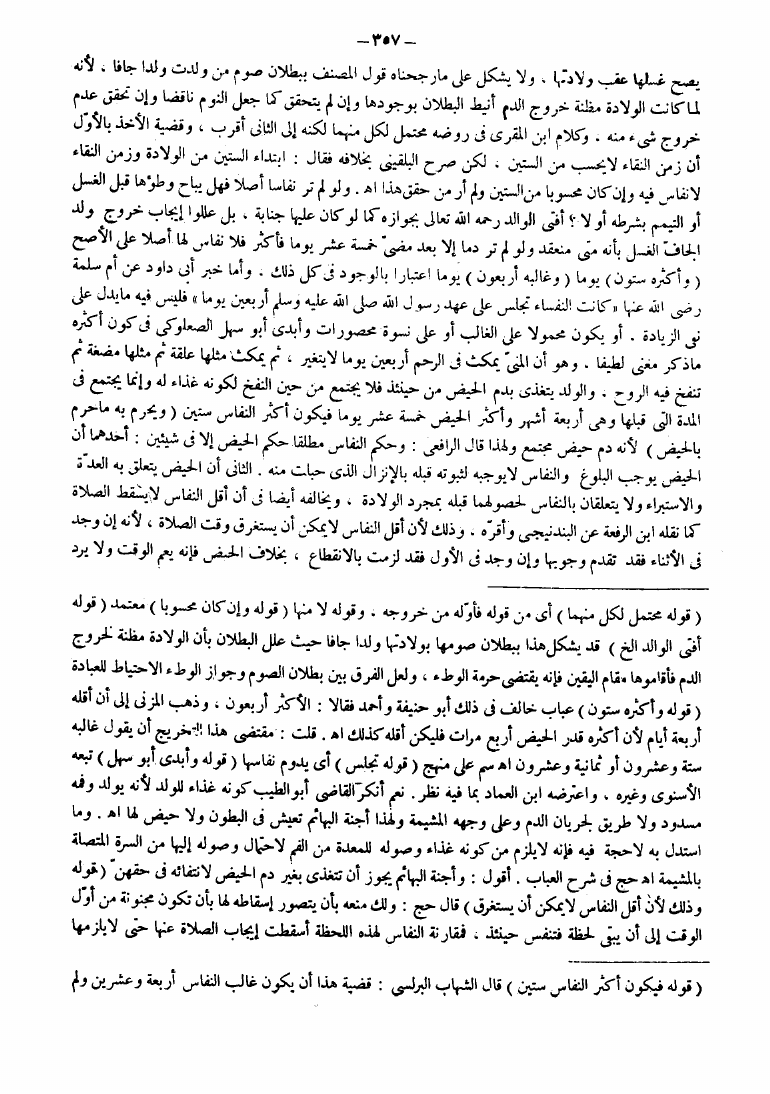 — ٣٥٧ —
يصح غسلها عقب ولادتها ، ولا يشكل على مارجحناه قول المصنف ببطلان صوم من ولدت ولدا جافا ، لأنه
لما كانت الولادة مظنة خروج الدم أنيط البطلان بوجودها وإن لم يتحقق كما جعل النوم ناقضا وإن تحقق عدم
خروج شيء منه . وكلام ابن المقرى فى روضه محتمل لكل منهما لكنه إلى الثانى أقرب ، وقضية الأخذ بالأوّل
أن زمن النقاء لايحسب من الستين ، لكن صرح البلقينى بخلافه فقال : ابتداء الستين من الولادة وزمن النقاء
لانفاس فيه وإن كان محسوبا من الستين ولم أر من حقق هذا اهـ . ولو لم تر نفاسا أصلا فهل يباح وطؤها قبل الغسل
أو التيمم بشرطه أو لا ؟ أفتى الوالد رحمه الله تعالى بجوازه كما لو كان عليها جنابة ، بل عللوا إيجاب خروج ولد
الجافّ الغسل بأنه منى منعقد ولو لم تر دما إلا بعد مضىّ خمسة عشر يوما فأكثر فلا نفاس لها أصلا على الأصح
( وأكثره ستون ) يوما ( وغالبه أربعون ) يوما اعتبارا بالوجود فى كل ذلك ، وأما خبر أبى داود عن أم سلمة
رضى الله عنها « كانت النفساء تجلس على عهد رسول الله صلى الله عليه وسلم أربعين يوما » فليس فيه مايدل على
نفى الزيادة . أو يكون محمولا على الغالب أو على نسوة محصورات وأبدى أبو سهل الصعلوكى فى كون أكثره
ماذكر معنى لطيفا . وهو أن المنىّ يمكث فى الرحم أربعين يوما لايتغير ، ثم يمكث مثلها علقة ثم مثلها مضغة ثم
تنفخ فيه الروح ، والولد يتغذى بدم الحيض من حينئذ فلا يجتمع من حين النفخ لكونه غذاء له وإنما يجتمع فى
المدة التى قبلها وهى أربعة أشهر وأكثر الحيض خمسة عشر يوما فيكون أكثر النفاس ستين ( ويحرم به ماحرم
بالحيض ) لأنه دم حيض مجتمع ولهذا قال الرافعى : وحكم النفاس مطلقا حكم الحيض إلا فى شيئين : أحدهما أن
الحيض يوجب البلوغ والنفاس لايوجبه لثبوته قبله بالإنزال الذى حبلت منه . الثانى أن الحيض يتعلق به العدّة
والاستبراء ولا يتعلقان بالنفاس لحصولهما قبله بمجرد الولادة ، ويخالفه أيضا فى أن أقل النفاس لايسقط الصلاة
كما نقله ابن الرفعة عن البندنيجى وأقرّه . وذلك لأن أقل النفاس لايمكن أن يستغرق وقت الصلاة ، لأنه إن وجد
فى الأثناء فقد تقدم وجوبها وإن وجد فى الأول فقد لزمت بالانقطاع ، بخلاف الحيض فإنه يعم الوقت ولا يرد
( قوله محتمل لكل منهما ) أى من قوله فأوّله من خروجه . وقوله لا منها ( قوله وإن كان محسوبا ) معتمد ( قوله
أفتى الوالد الخ ) قد يشكل هذا ببطلان صومها بولادتها ولدا جافا حيث علل البطلان بأن الولادة مظنة لخروج
الدم فأقاموها مقام اليقين فإنه يقتضى حرمة الوطء ، ولعل الفرق بين بطلان الصوم وجواز الوطء الاحتياط للعبادة
( قوله وأكثره ستون ) عباب خالف فى ذلك أبو حنيفة وأحمد فقالا : الأكثر أربعون ، وذهب المزنى إلى أن أقله
أربعة أيام لأن أكثره قدر الحيض أربع مرات فليكن أقله كذلك اهـ . قلت : مقتضى هذا التخريج أن يقول غالبه
ستة وعشرون أو ثمانية وعشرون اهـ سم على منهج ( قوله تجلس ) أى يدوم نفاسها ( قوله وأبدى أبو سهل ) تبعه
الأسنوى وغيره ، واعترضه ابن العماد بما فيه نظر. نعم أنكر القاضى أبو الطيب كونه غذاء للولد لأنه يولد وفمه
مسدود ولا طريق لجريان الدم وعلى وجهه المشيمة ولهذا أجنة البهائم تعيش فى البطون ولا حيض لها اهـ . وما
استدل به لاحجة فيه فإنه لايلزم من كونه غذاء وصوله للمعدة من الفم لاحتمال وصوله إليها من السرة المتصلة
بالمشيمة اهـ حج فى شرح العباب . أقول : وأجنة البهائم يجوز أن تتغذى بغير دم الحيض لانتفائه فى حقهنّ ( قوله
وذلك لأن أقل النفاس لايمكن أن يستغرق ) قال حج : ولك منعه بأن يتصور إسقاطه لها بأن تكون مجنونة من أوّل
الوقت إلى أن يبقى لحظة فتنفس حينئذ ، فمقارنة النفاس لهذه اللحظة أسقطت إيجاب الصلاة عنها حتى لايلزمها
( قوله فيكون أكثر النفاس ستين ) قال الشهاب البرلسى : قضية هذا أن يكون غالب النفاس أربعة وعشرين ولم